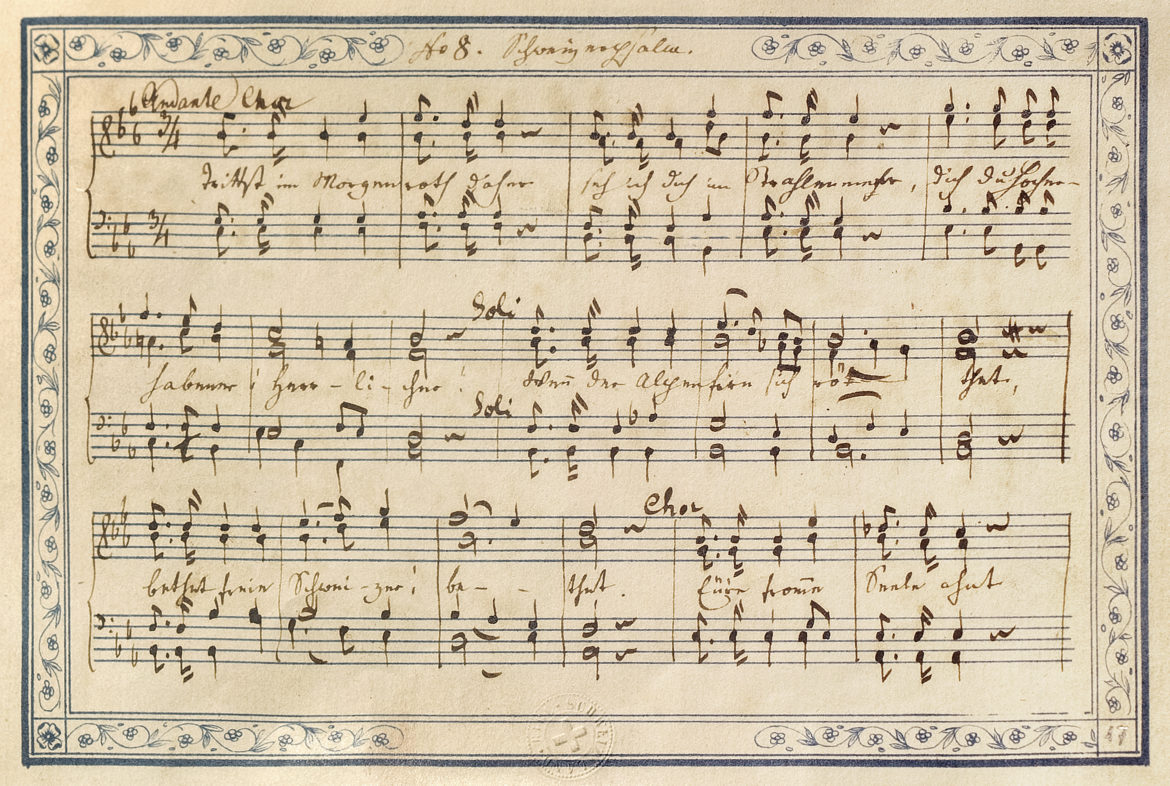 No 8. Schweizerpsalm.
Andante Chor
3/4
trittst im Morgenroth daher seh ich dich im Strahlenmeer, dich du Hocher-
3/4
Soli
habener! Herr-li-cher! Wenn der Alpenfirn sich röthet,
Soli
Chor
bethet freie Schwei-zer! be-- thet. Eüre fromme Seele ahnt